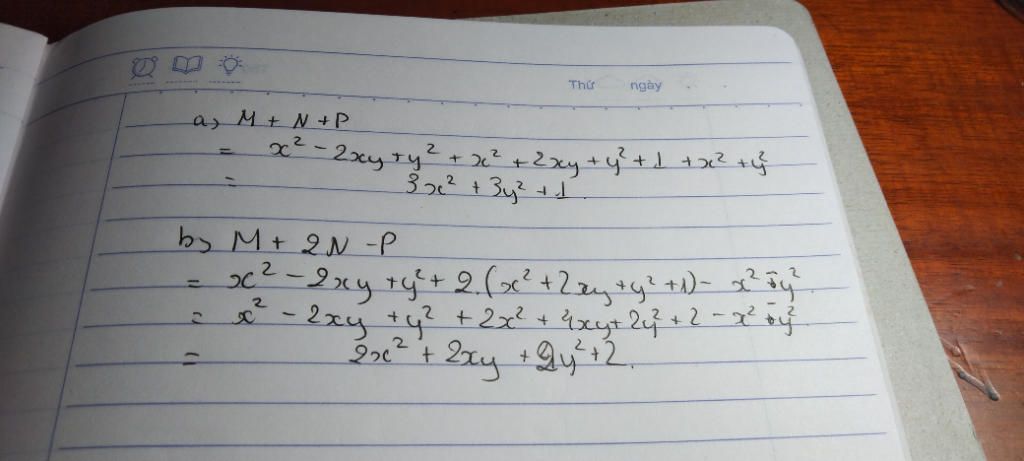 Thứ ngày
a) M + N + P
= x² - 2xy + y² + x² + 2xy + y² + 1 + x² + y²
= 3x² + 3y² + 1
b) M + 2N - P
= x² - 2xy + y² + 2.(x² + 2xy + y² + 1) - x² - y²
= x² - 2xy + y² + 2x² + 4xy + 2y² + 2 - x² - y²
= 2x² + 2xy + 2y² + 2.